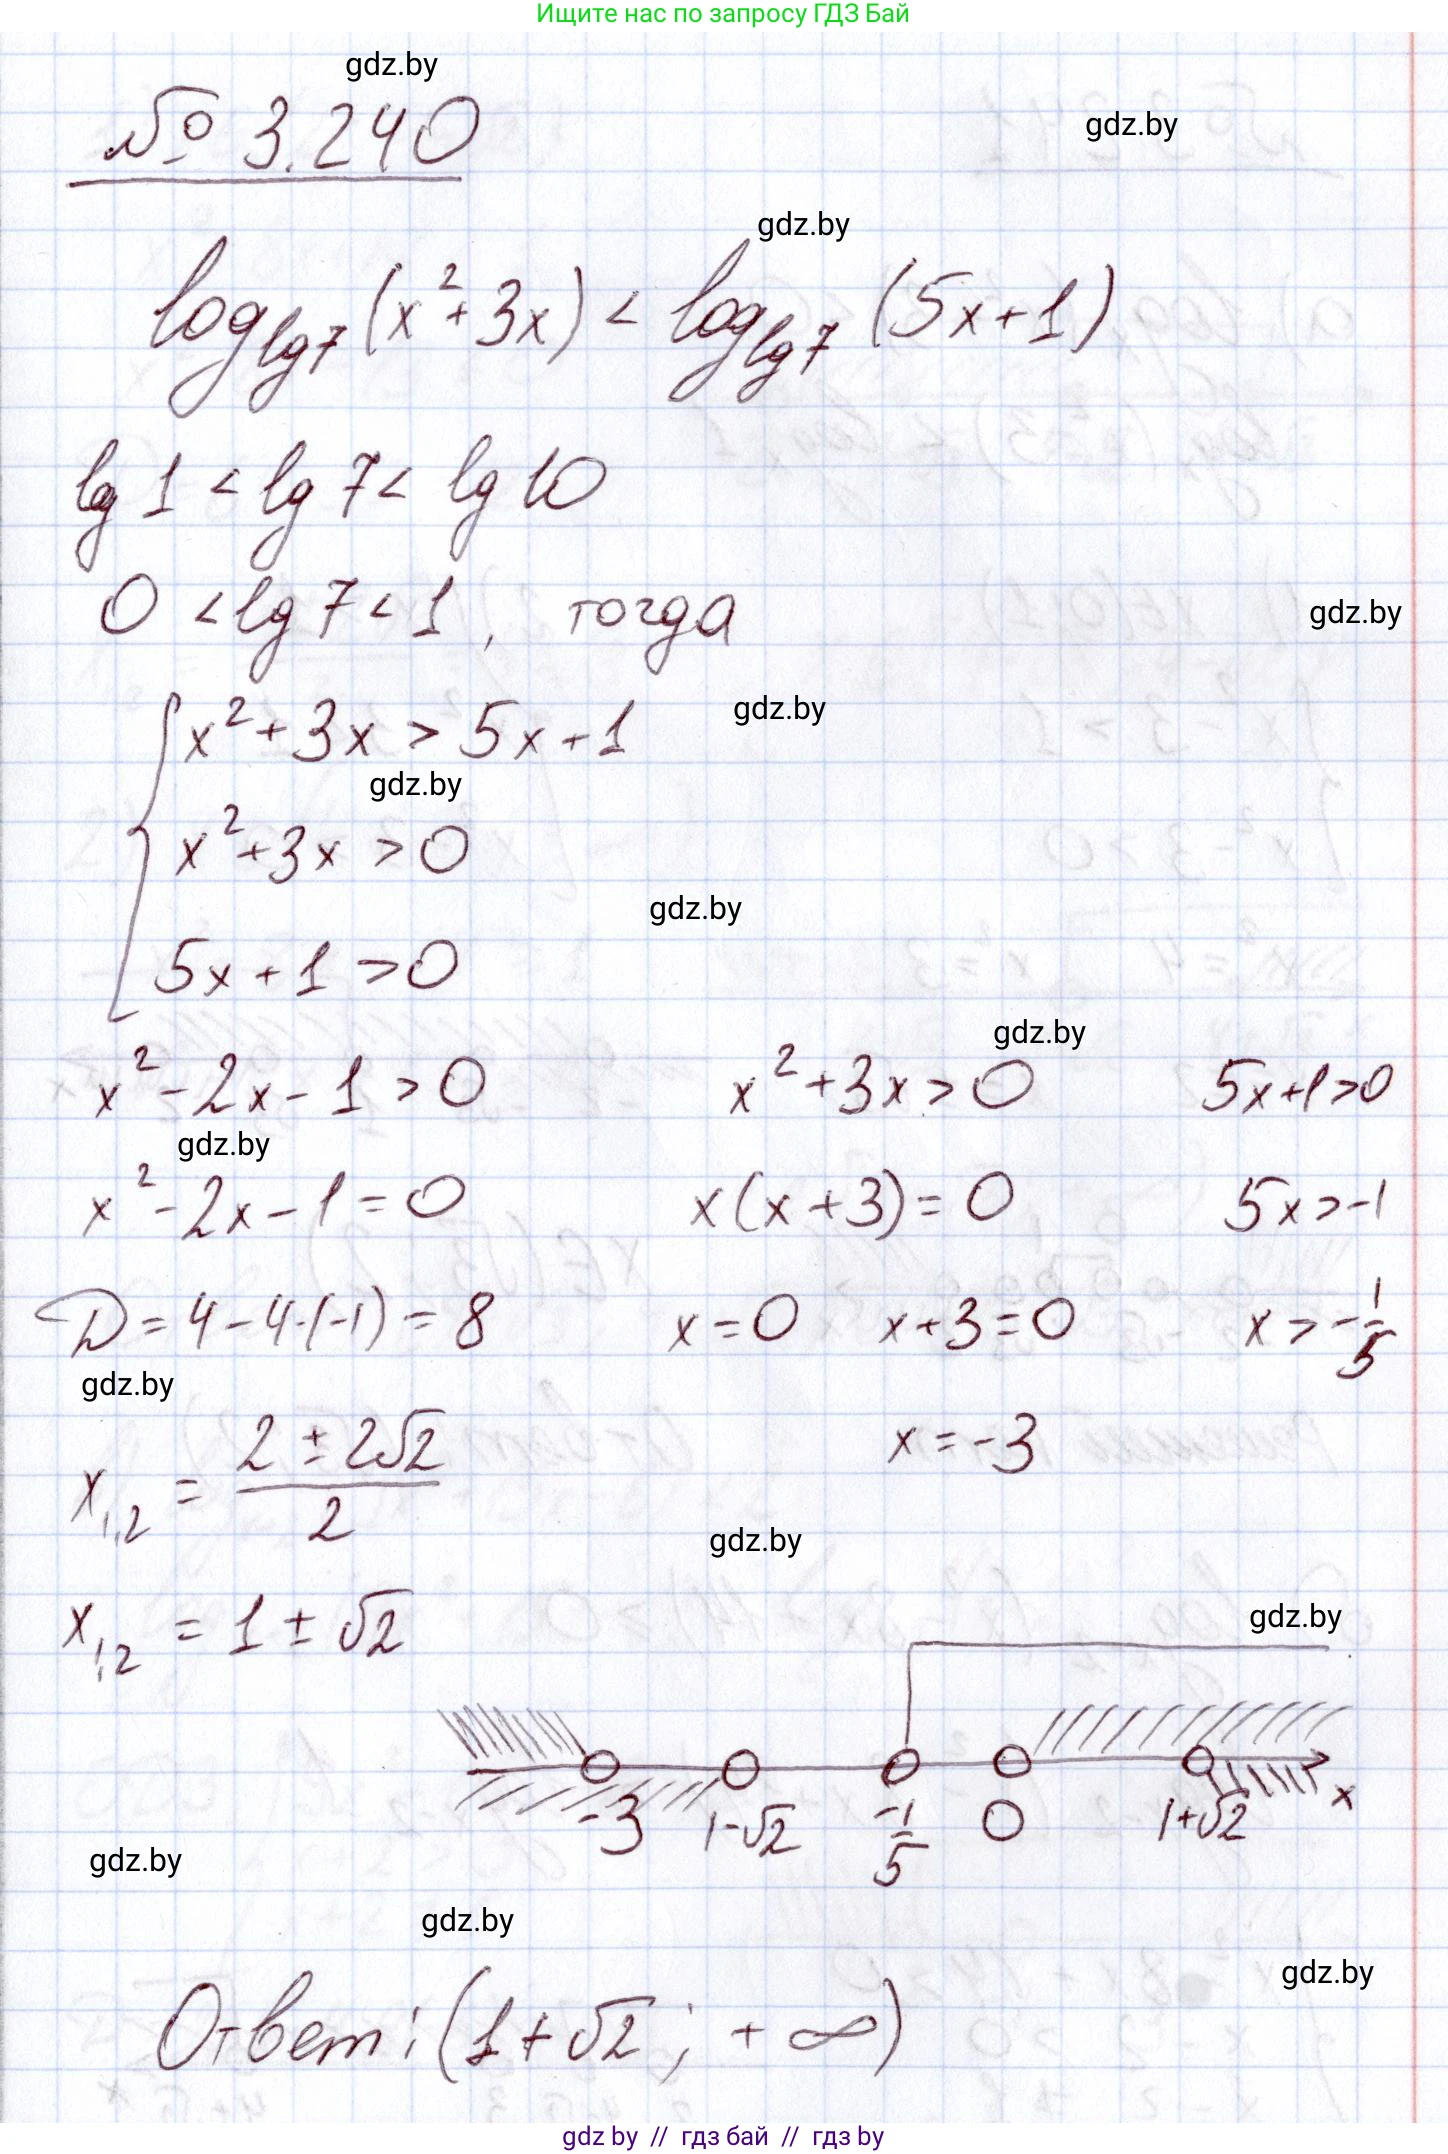 Ищите нас по запросу ГДЗ Бай
gdz.by
№ 3.240
gdz.by
gdz.by
log_{lg7}(x²+3x) < log_{lg7}(5x+1)
lg 1 < lg 7 < lg 10
0 < lg 7 < 1, тогда
gdz.by
x²+3x > 5x+1
gdz.by
gdz.by
x²+3x > 0
gdz.by
5x+1 > 0
gdz.by
x²-2x-1 > 0 x²+3x > 0 5x+1>0
gdz.by
x²-2x-1 = 0 x(x+3) = 0 5x > -1
D = 4-4·(-1) = 8 x = 0 x+3=0 x > -1/5
gdz.by
x₁,₂ = (2 ± 2√2)/2 x = -3
gdz.by
x₁,₂ = 1 ± √2
gdz.by
-3 1-√2 -1/5 0 1+√2 x
gdz.by
gdz.by
gdz.by
Ответ: (1+√2; +∞)
gdz by // гдз бай // гдз by